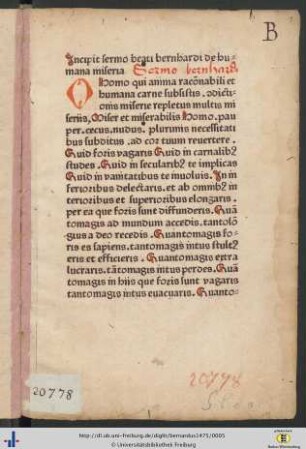 B
Incipit sermo beati bernhardi de hu-
mana miseria Sermo bernhardi
O Homo qui anima racõnabili et
humana carne subsistis. ↄdicti-
onis miserie repletus multis mi
seriis, Miser et miserabilis Homo. pau
per. cecus. nudus. plurimis necessitati
bus subditus. ad cor tuum revertere.
Quid foris vagaris Quid in carnalibꝫ
studes. Quid in secularibꝫ te implicas
Quid in vanitatibus te inuoluis. In in
ferioribus delectaris. et ab omnibꝫ in
terioribus et superioribus elongaris.
per ea que foris sunt diffunderis. Quã
tomagis ad mundum accedis. tantolõ
gius a deo recedis. Quantomagis fo-
ris es sapiens. tantomagis intus stult⁹
eris et efficieris. Quantomagis extra
lucraris. tãtomagis intus perdes. Quã
tomagis in hiis que foris sunt vagaris
tantomagis intus evacuaris. Quanto-
20778
20778
http://dl.ub.uni-freiburg.de/diglit/bernardus1475/0005
© Universitätsbibliothek Freiburg